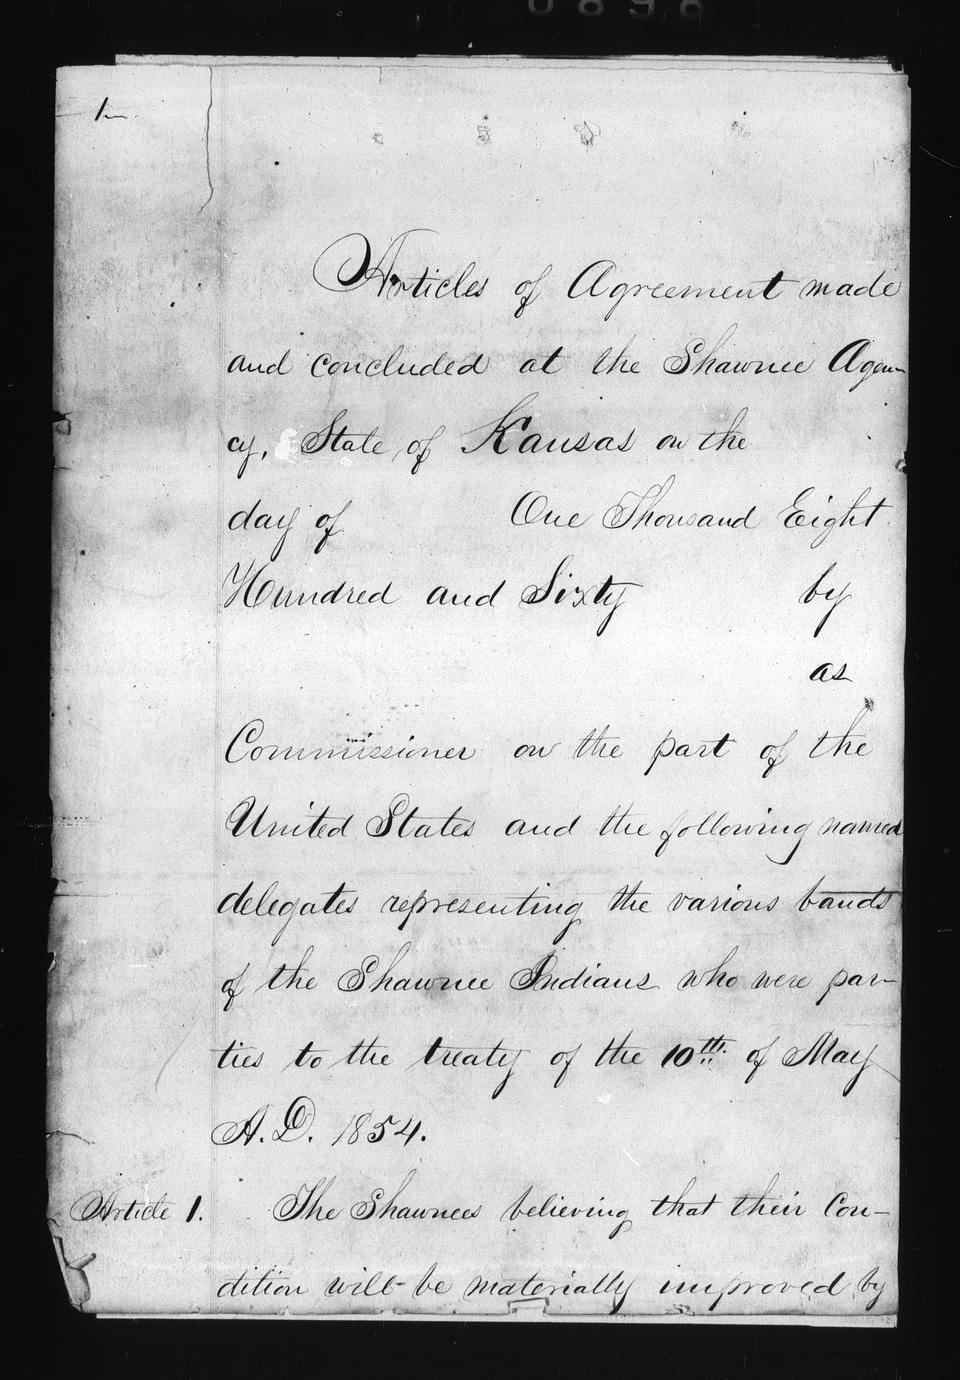 0898
1
Articles of Agreement made
and concluded at the Shawnee Agen-
cy, State of Kansas on the
day of One Thousand Eight
Hundred and Sixty by
as
Commissioner on the part of the
United States and the following named
delegates representing the various bands
of the Shawnee Indians who were par-
ties to the treaty of the 10th. of May
A.D. 1854.
Article 1. The Shawnees believing that their Con-
dition will be materially improved by